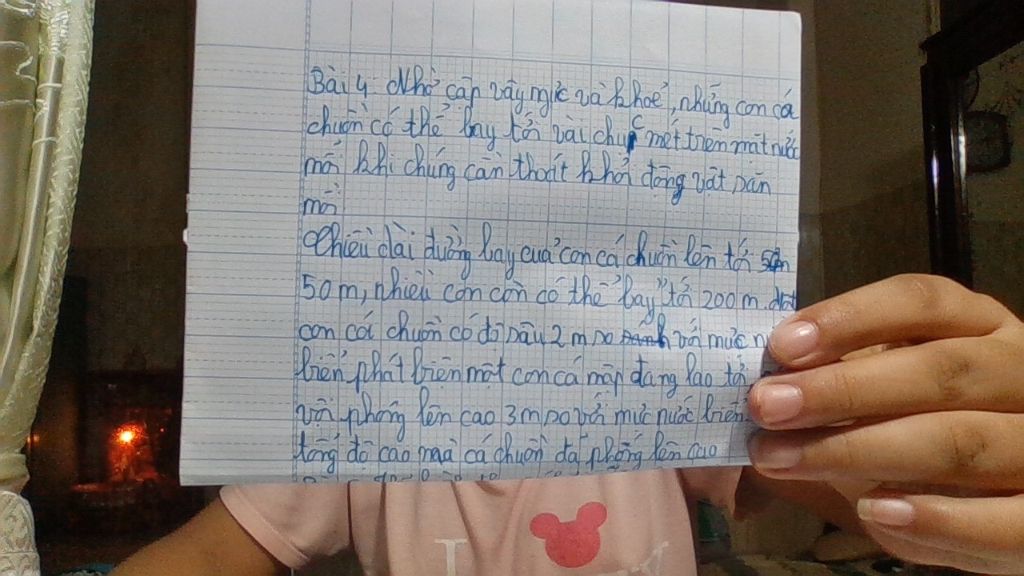 Bài 4: Nhờ cặp vây ngực và khoẻ, những con cá
chuồn có thể bay tới vài chục mét trên mặt nước
mỗi khi chúng cần thoát khỏi động vật săn
mồi
Chiều dài đường bay của con cá chuồn lên tới 50m
50 m, nhiều con còn có thể "bay" tới 200 m
con cá chuồn có độ sâu 2 m so với mực
biển, phát biện một con cá mập đang lao tới
vội phóng lên cao 3m so với mực nước biển
tổng độ cao mà cá chuồn đã phóng lên cao
I